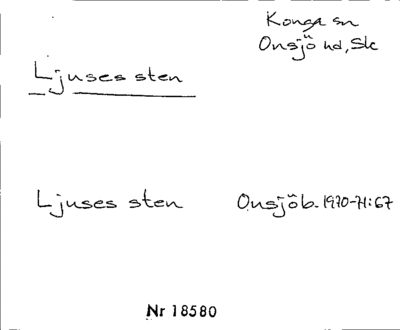 Konga sn
Onsjö hd, Sk
Ljuses sten
Ljuses sten Onsjöb. 1970-71:67
Nr 18580